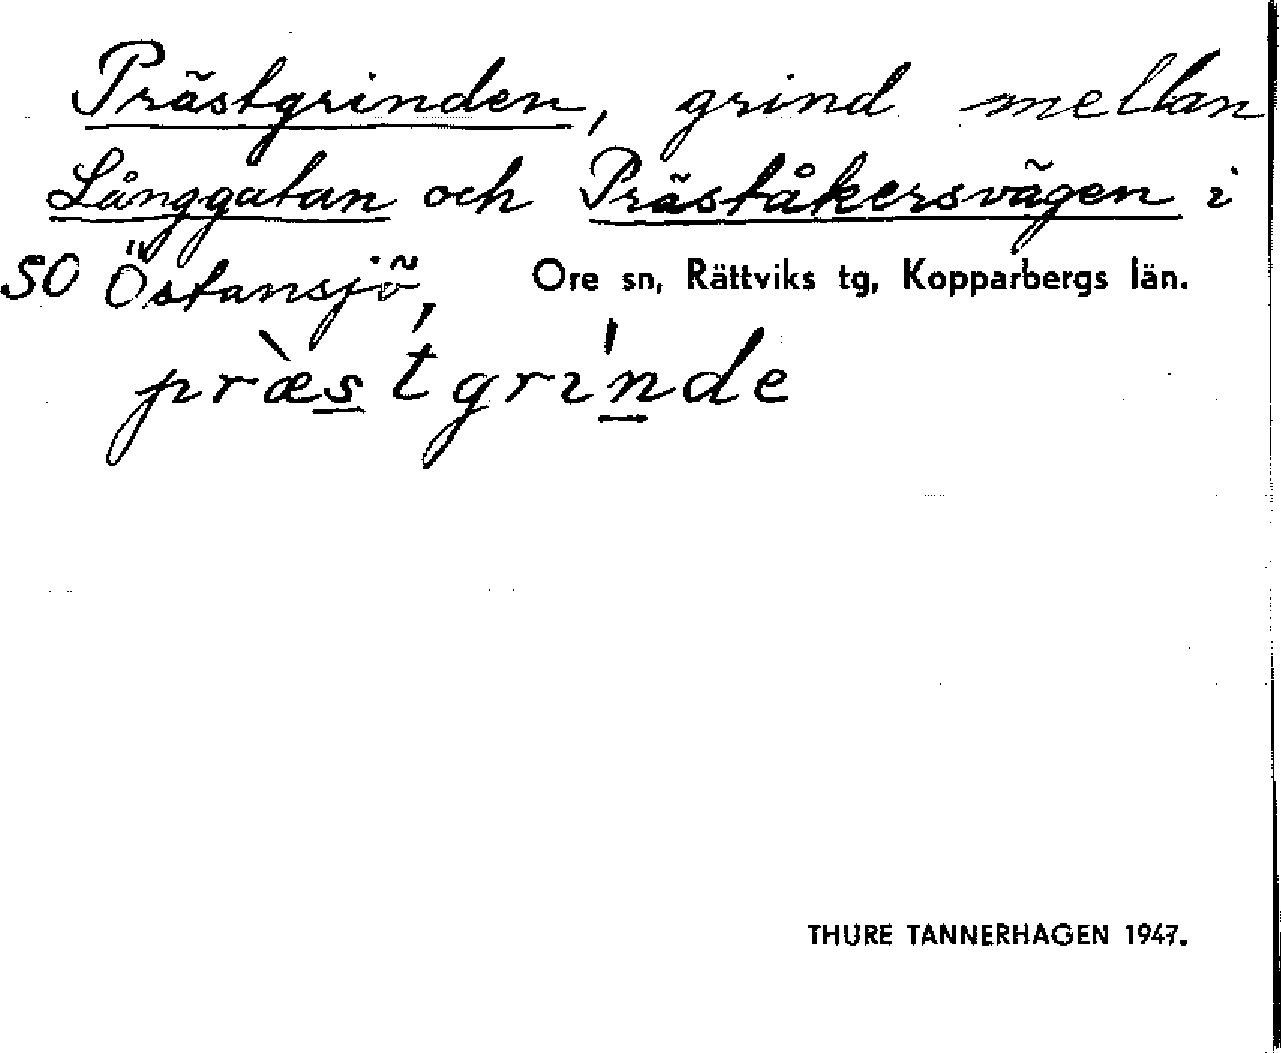 Prästgrinden, grind mellan
Långgatan och Präståkersvägen i
SO Östansjö, Ore sn, Rättviks tg, Kopparbergs län.
præ̀stgri̍nde
THURE TANNERHAGEN 1947.